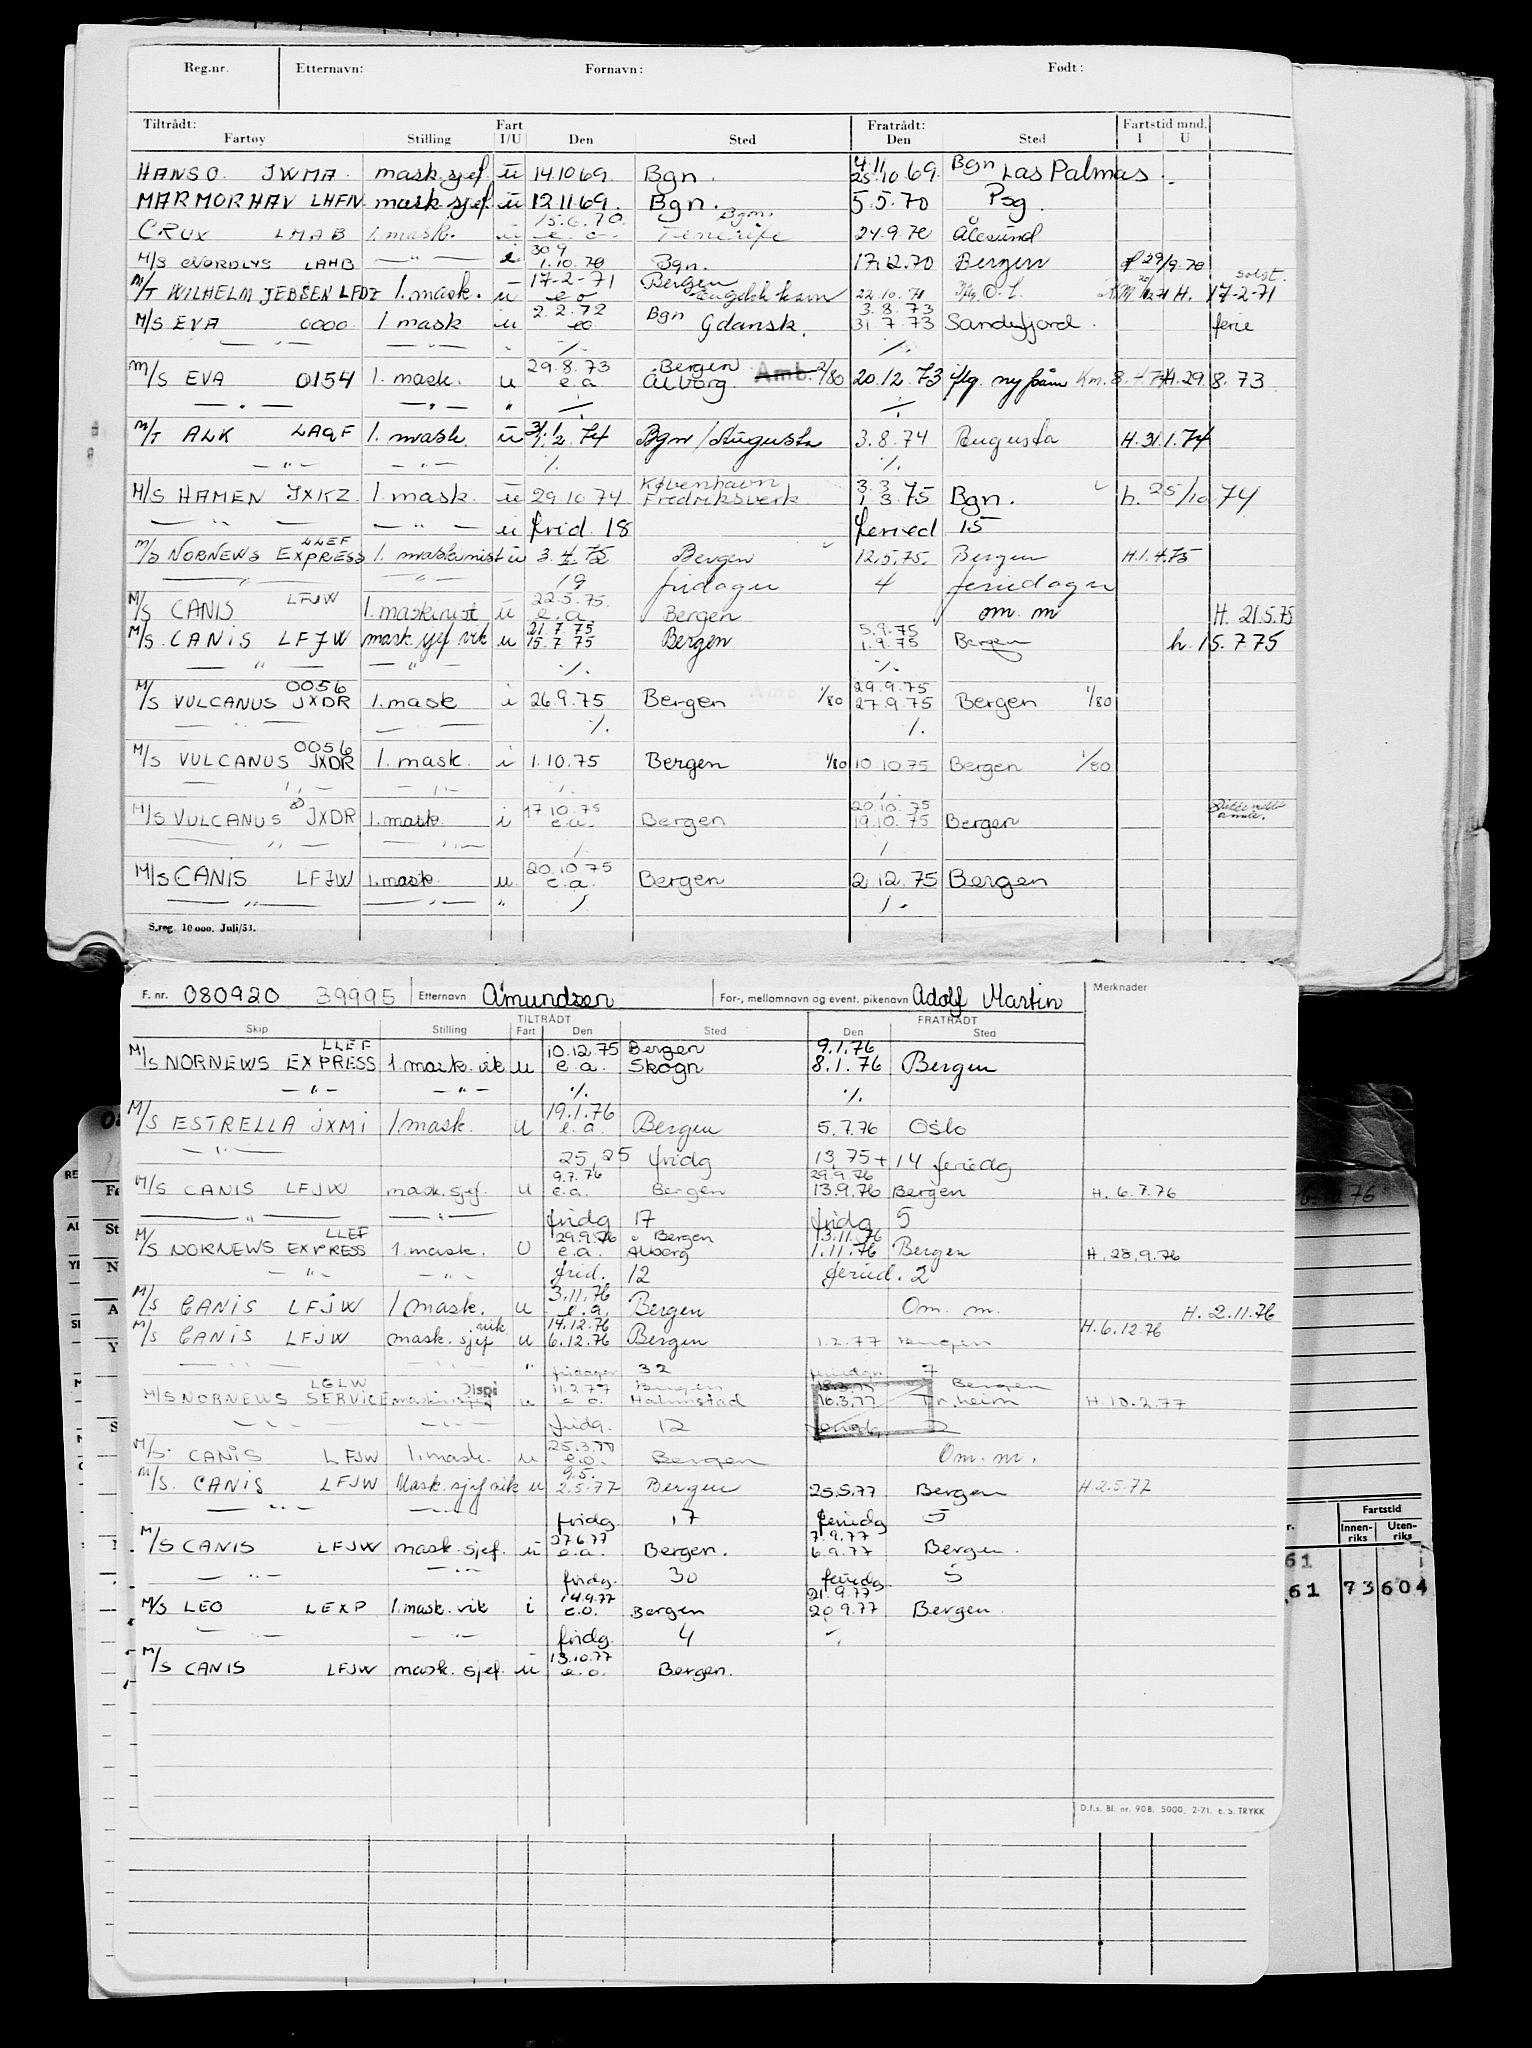 Reg.nr. Etternavn: Fornavn: Født:
Tiltrådt: Fart Fratrådt: Fartstid mnd.
Fartøy Stilling I/U Den Sted Den Sted I U
4.11
HANSO. JWMA. mask.sjef u 14.10 69. Bgn. 25.10 69. Bgn Las Palmas.
MARMORHAV LHFN mask.sjef. u 12.11 69. Bgn. 5.5.70 Psg.
15.6.70. Bgn.
CRUX LMAB 1. mask. u e.o. Tenerife 24.9.70 Ålesund
30.9
M/S NORDLYS LAHB — " — i 1.10.70 Bgn. 17.12.70 Bergen 29/9.70
17-2-71 Bergen solgt.
M/T WILHELM JEBSEN LFDZ 1. mask. u e o Engelsk havn 22.10.71 H. 17-2-71
2.2.72 3.8.73
M/S EVA 0000 1 mask u eo Bgn Gdansk. 31.7.73 Sandefjord. ferie
— " — — " — " ./. ./.
29.8.73 Bergen
M/S EVA 0154 1. mask. u e.a Ålborg. Amb. 2/80 20.12.73 iflg. ny frem Km. 8.4.74 H. 29.8.73
— " — — " — " ./. ./.
31.1
M/T ALK LAQF 1. mask. u 1.2.74 Bgn/Augusta 3.8.74 Augusta H. 31.1.74
— " — — " — ./. ./.
København 3.3
M/S HAMEN JXKZ 1. mask. u 29.10 74 Fredriksverk 1.3.75 Bgn. h. 25/10 74
— " — — " — u frid. 18 feried 15
LLEF
M/S NORNEWS EXPRESS 1. maskinist u 3.4.75 Bergen 12.5.75. Bergen H.1.4.75
— " — — " — 19 fridager 4 feriedager
22.5.75.
M/S CANIS LFJW 1. maskinist u e.a. Bergen om. m H. 21.5.75
21.7.75 5.9.75
M/S. CANIS LFJW mask.sjef vik u 15.7.75 Bergen 1.9.75 Bergen h. 15.7.75
— " — — " — ./. ./.
0056 29.9.75
M/S VULCANUS JXDR 1. mask i 26.9.75 Bergen 1/80 27.9.75 Bergen 1/80
— " — ./. ./.
0056
M/S VULCANUS JXDR 1. mask. i 1.10.75 Bergen 1/80 10.10.75 Bergen 1/80
— " — — " —
17.10.75 20.10.75
M/S VULCANUS JXDR 1. mask. i e.a. Bergen 19.10.75 Bergen
— " — — " — ./. ./.
20.10.75
M/S CANIS LFJW 1. mask. u. e.a. Bergen 2.12.75 Bergen
— " — — " — " ./. ./.
S.reg. 10 000. Juli/53.
F. nr. 080920 39995 Etternavn Amundsen For-, mellomnavn og event. pikenavn Adolf Martin Merknader
TILTRÅDT FRATRÅDT
Skip Stilling Fart Den Sted Den Sted
LLEF 10.12.75 Bergen 9.1.76
M/S NORNEWS EXPRESS 1. mask. vik u e.a. Skogn 8.1.76 Bergen
— " — — " — ./. ./.
19.1.76
M/S ESTRELLA JXMI 1. mask. u e.a. Bergen 5.7.76 Oslo
— " — 25,25 fridg 13,75 + 14 feriedg
9.7.76 29.9.76
M/S CANIS LFJW mask.sjef. u e.a. Bergen 13.9.76 Bergen H. 6.7.76
— " — — " — fridg 17 fridg 5
LLEF 29.9.76 Bergen 13.11.76
M/S NORNEWS EXPRESS 1. mask. U e.a. Alborg 1.11.76 Bergen H. 28.9.76
— " — — " — frid. 12 feried. 2
3.11.76
M/S CANIS LFJW 1 mask. u e.a. Bergen Om. m. H. 2.11.76
vik 14.12.76
M/S CANIS LFJW mask. sjef u 6.12.76 Bergen 1.2.77 Bergen H. 6.12.76
— " — — " — " fridager 32 feriedgr 7
LGLW Disp 11.2.77 Bergen Bergen
M/S NORNEWS SERVICE maskinsjef u e.o. Halmstad 16.3.77 Tr.heim H. 10.2.77
— " — — " — fridg. 12
25.3.77
M/S. CANIS LFJW 1. mask. u e.o. Bergen Om. m.
9.5.
M/S. CANIS LFJW Mask.sjef vik u 2.5.77 Bergen 25.5.77 Bergen H. 2.5.77
— " — — " — fridg. 17 feriedg 5
27.6.77 7.9.77
M/S CANIS LFJW mask.sjef. u e.a. Bergen. 6.9.77 Bergen.
— " — — " — fridg. 30 feriedg. 5
14.9.77 21.9.77
M/S LEO LEXP 1. mask. vik i e.o. Bergen 20.9.77 Bergen.
— " — — " — fridg. 4 ./.
13.10.77
M/S CANIS LFJW mask. sjef. u e.o. Bergen.
D.f.s. Bl. nr. 90B. 5000. 2-71. E. S. TRYKK
Fartstid
Innenriks Utenriks
61
61 73 604